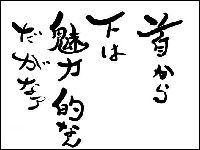 首から
下は
魅力的なん
だがなァ